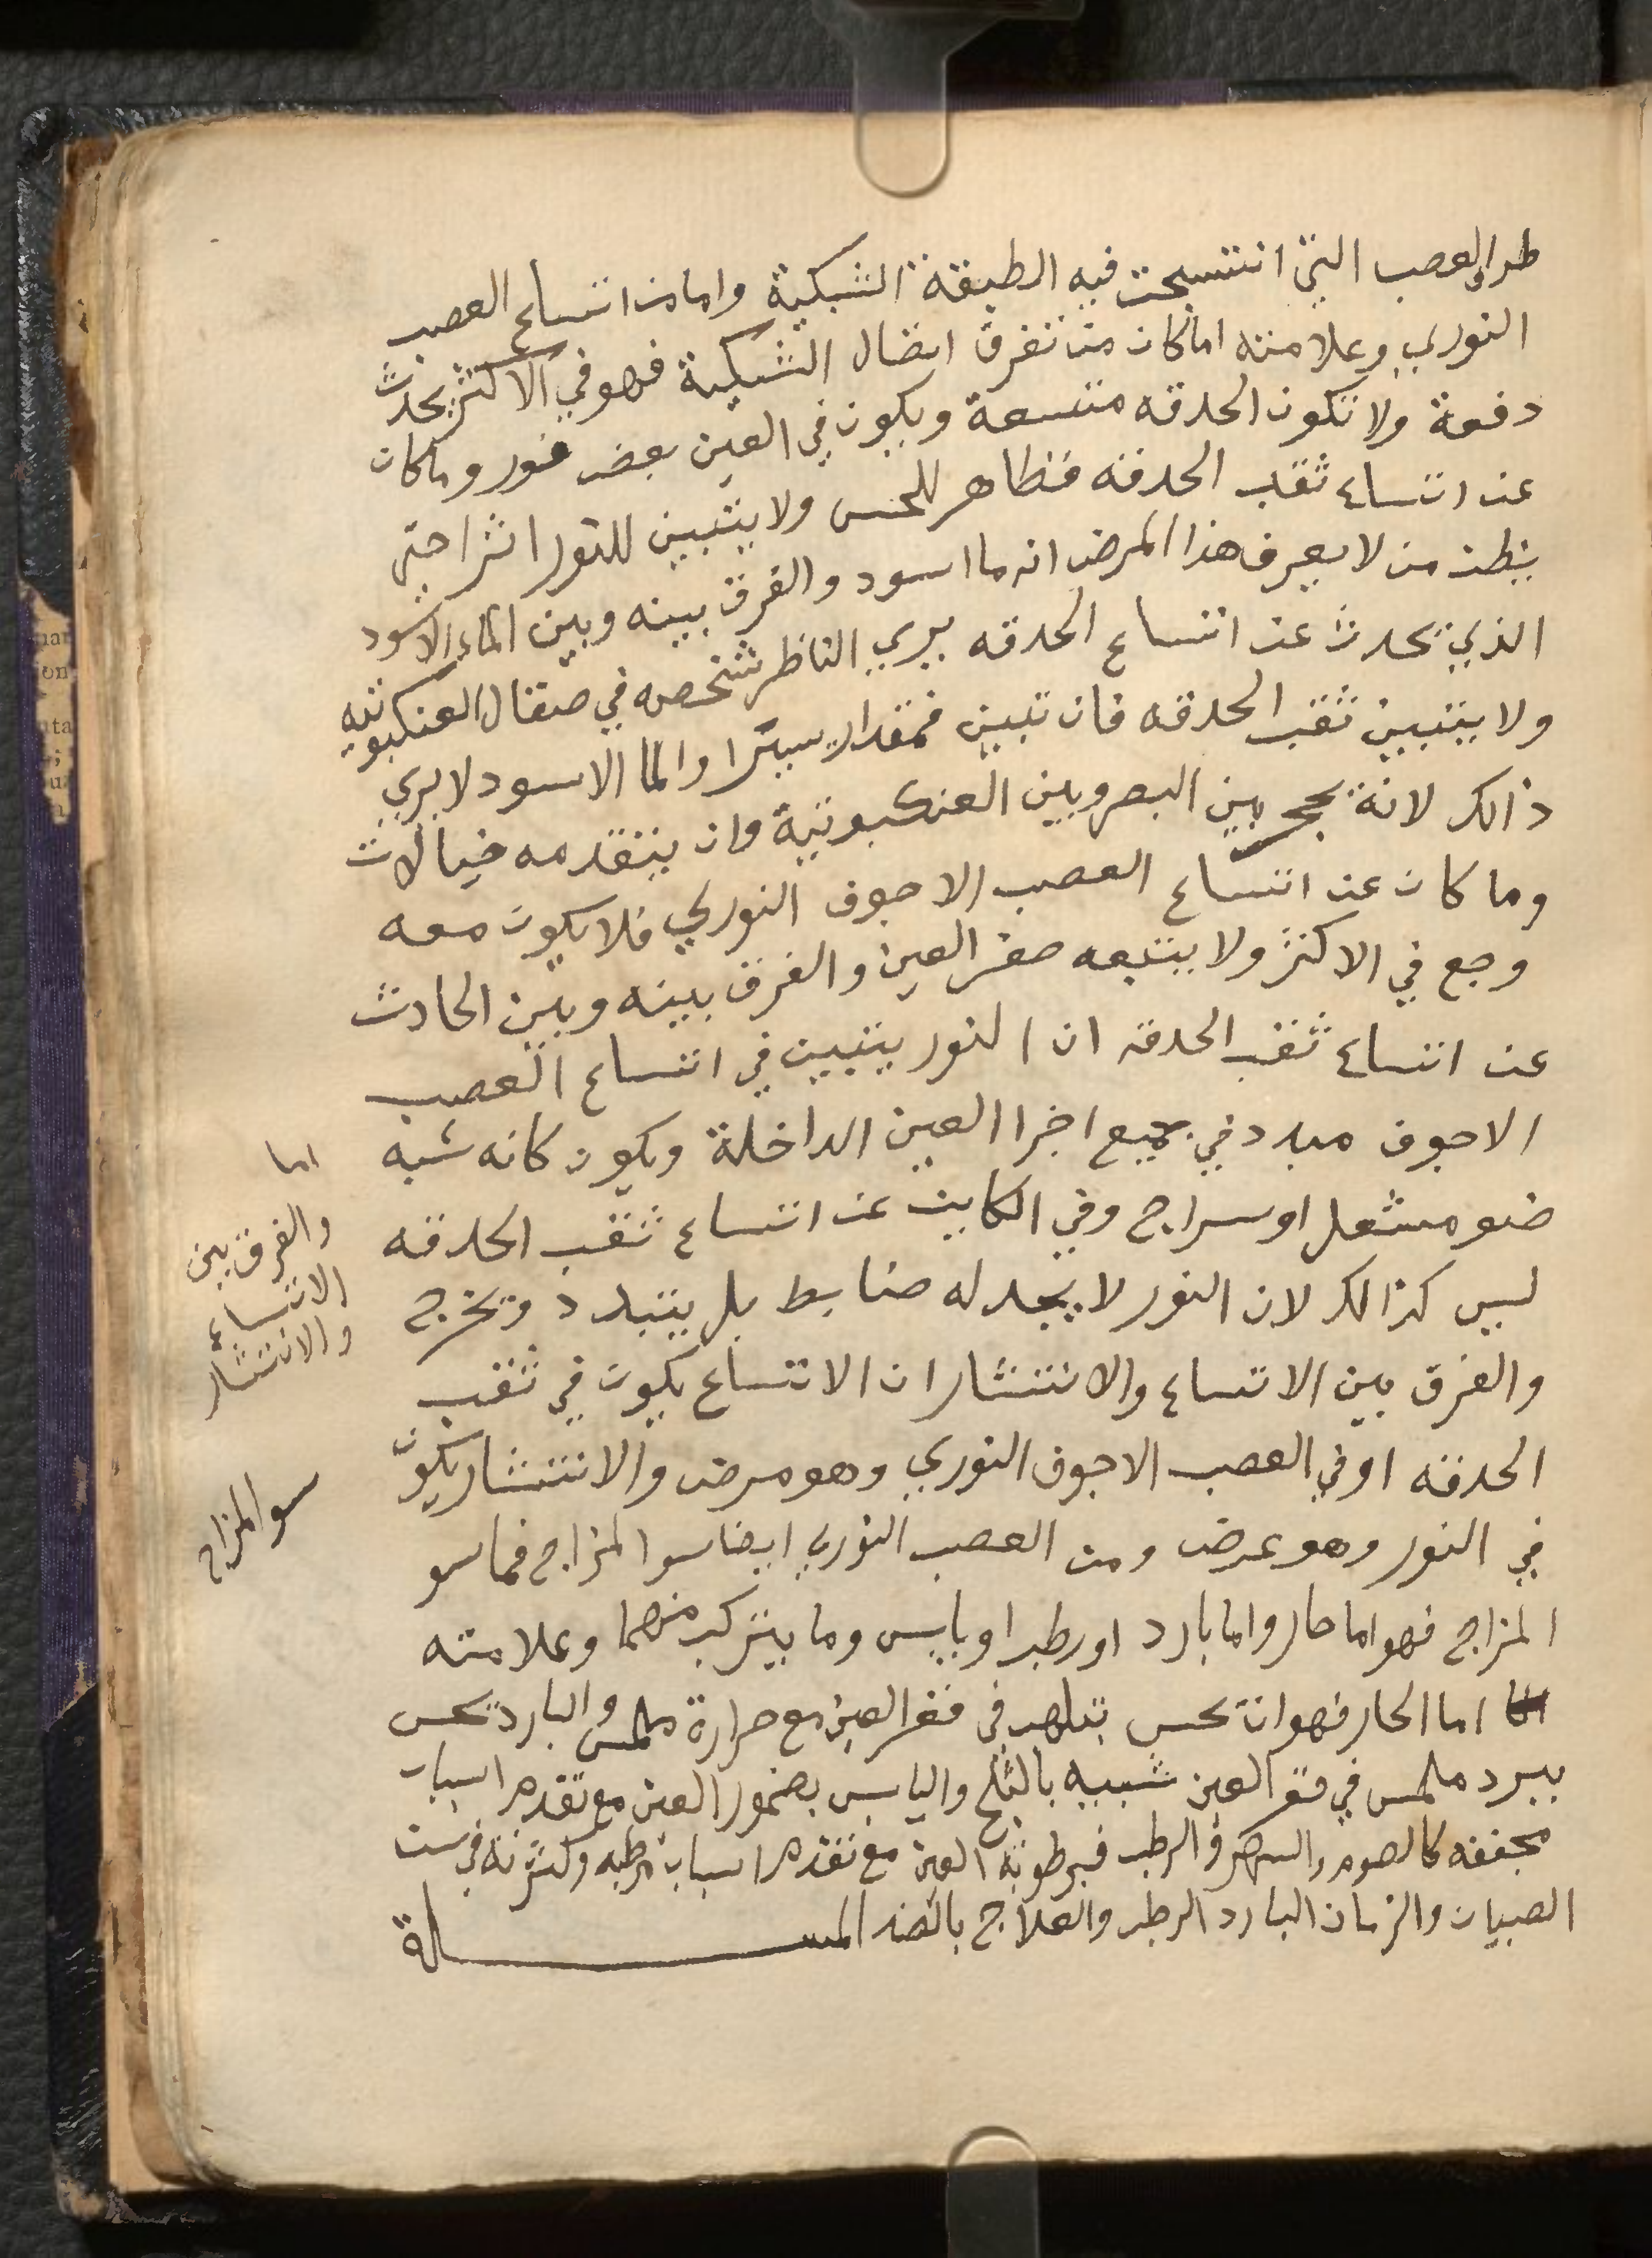 طرا والعصب التي انتسجت فيه الطبقة الشبكية واما من اتساع العصب
النوري وعلامته اما كان من تفرق اتصال الشبكية فهو في الاكثر يحدث
دفعة ولا تكون الحدقه متسعة ويكون في العين بعض غور وما كان
عن اتساع ثقب الحدقه فظاهر للحس ولا يتبين للنور اثرا حتى
يظن من لا يعرف هذا المرض انه ما اسود والفرق بينه وبين الماء الاسود
الذي يحدث عن اتساع الحدقه يري الناظر شخصه في صقال العنكبوتيه
ولا يتبين ثقب الحدقه فان تبين فمقدار يسيرا والما الاسود لا يري
ذالك لانة يحجب بين البصر وبين العنكبوتية وان يتقدمه خيالات
وما كان عن اتساع العصب الاجوف النوري فلا يكون معه
وجع في الاكثر ولا يتبعه صغر العين والفرق بينه وبين الحادث
عن اتساع ثقب الحدقه ان النور يتبين في اتساع العصب
الاجوف مبدد في جميع اجزا العين الداخلة ويكون كانه شبه
ضو مشعل او سراج وفي الكاين عن اتساع ثقب الحدقه
ليس كذالك لان النور لا يجد له ضابط بل يتبدد ويخرج
والفرق بين الاتساع والانتشار ان الاتساع يكون في ثقب
الحدقه او في العصب الاجوف النوري وهو مرض والانتشار يكون
في النور وهو عرض ومن العصب النوري ايضا سو المزاج فما سو
المزاج فهو اما حار واما بارد او رطب او يابس وما يتركب منهما وعلامته
اما الحار فهو ان تحس بتلهب في قعر العين مع حرارة ملمس والبارد تحس
ببرد ملمس في قعر العين شبيه بالثلج واليابس بضمور العين مع تقدم اسباب
مجففه كالصوم والسهر والرطب فبرطوبة العين مع تقدم اسباب مرطبه وكثرته في سن
الصبيان والزمان البارد الرطب والعلاج بالضد المسـلة
اما
والفرق بين
الاتساع
والانتشار
سو المزاج